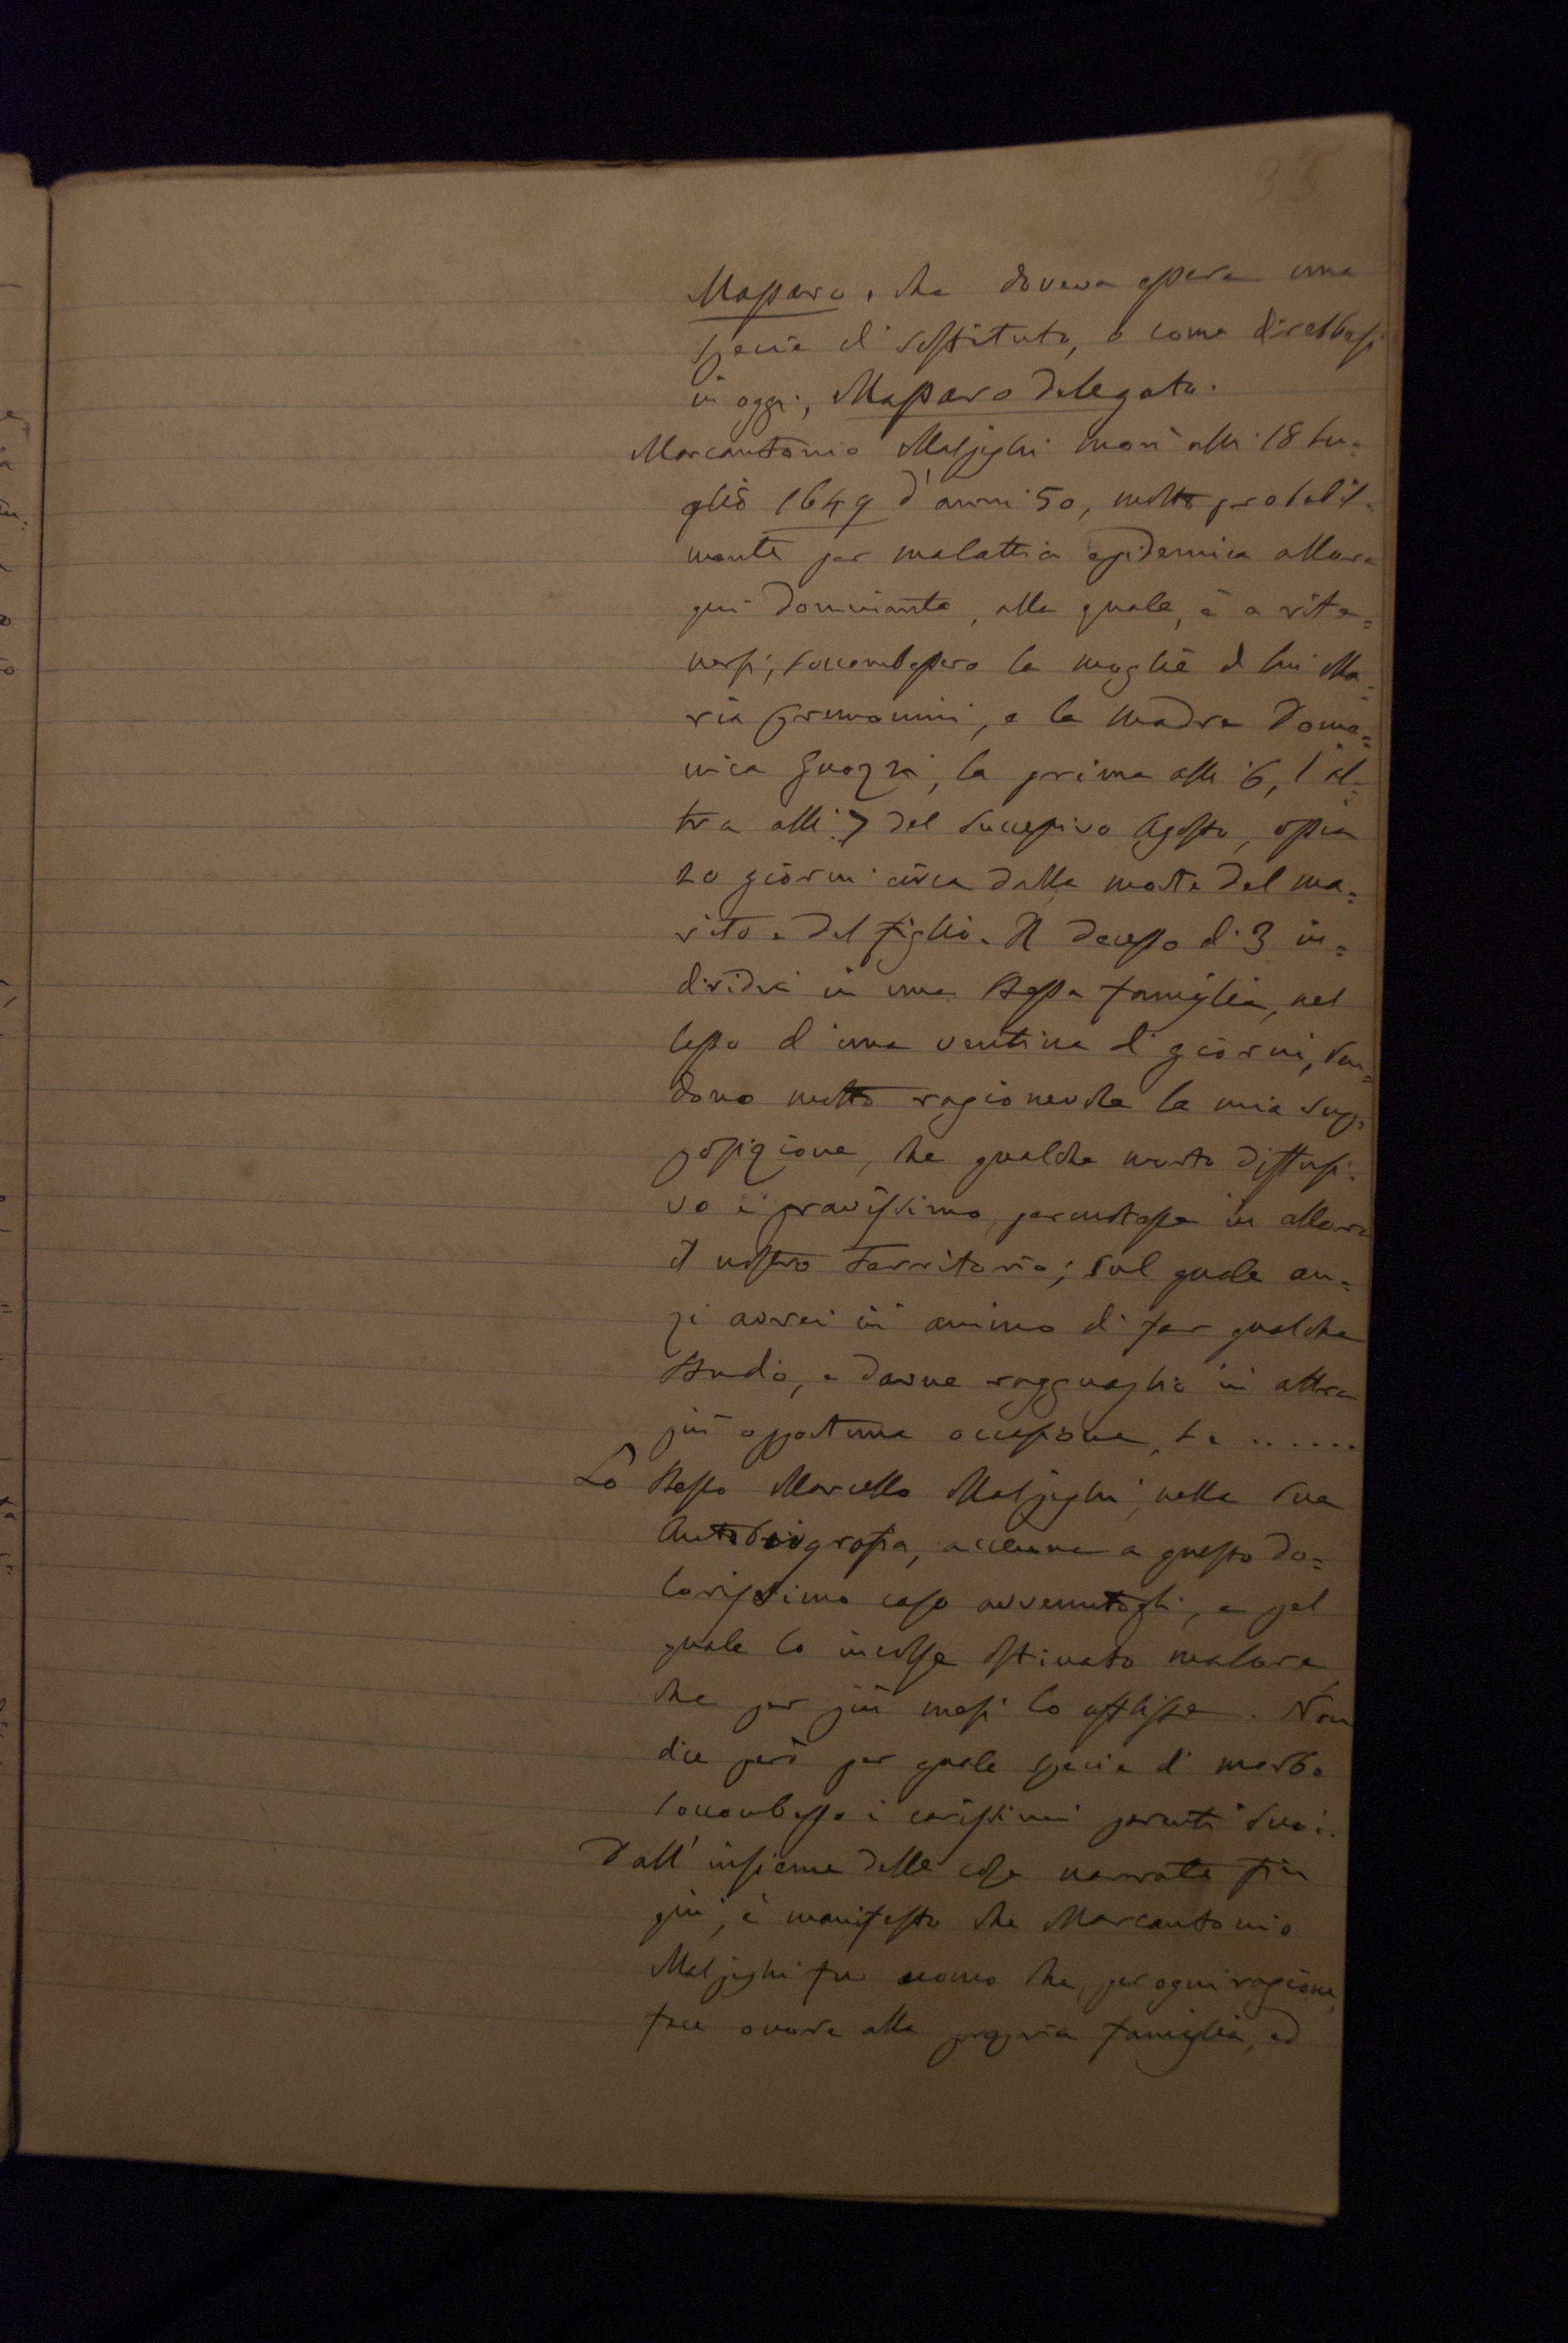 35
Massaro, che doveva essere una
specie di sostituto, o come direbbesi
in oggi, Massaro delegato.
Marcantonio Malpighi morì alli 18 Lu=
glio 1649 d'anni 50, molto probabil=
mente per malattia epidemica allora
qui dominante, alla quale, è a rite=
nersi, soccombessero la moglie di lui Ma=
ria Cremonini, e la madre Dome=
nica Guozzi, la prima alli 6, l'al=
tra alli 7 del successivo Agosto, ossia
20 giorni circa dalla morte del ma=
rito e del figlio. Il decesso di 3 in=
dividui in una stessa famiglia, nel
lasso d'una ventina di giorni, ren=
dono molto ragionevole la mia sup=
posizione, che qualche morbo diffusi=
vo e gravissimo, percuotesse in allora
il nostro Territorio; sul quale an=
zi avrei in animo di far qualche
studio, e darne ragguaglio in altra
più opportuna occasione, se ......
Lo stesso Marcello Malpighi, nella sua
Autobiografia, accenna a questo do=
lorissimo caso avvenutogli, e pel
quale lo incolse ostinato malore
che per più mesi lo afflisse. Non
dice però per quale specie di morbo
soccombesse i carissimi parenti suoi.
Dall'insieme delle cose narrate fin
qui, è manifesto che Marcantonio
Malpighi fu uomo che, per ogni ragione,
fece onore alla propria famiglia, ed